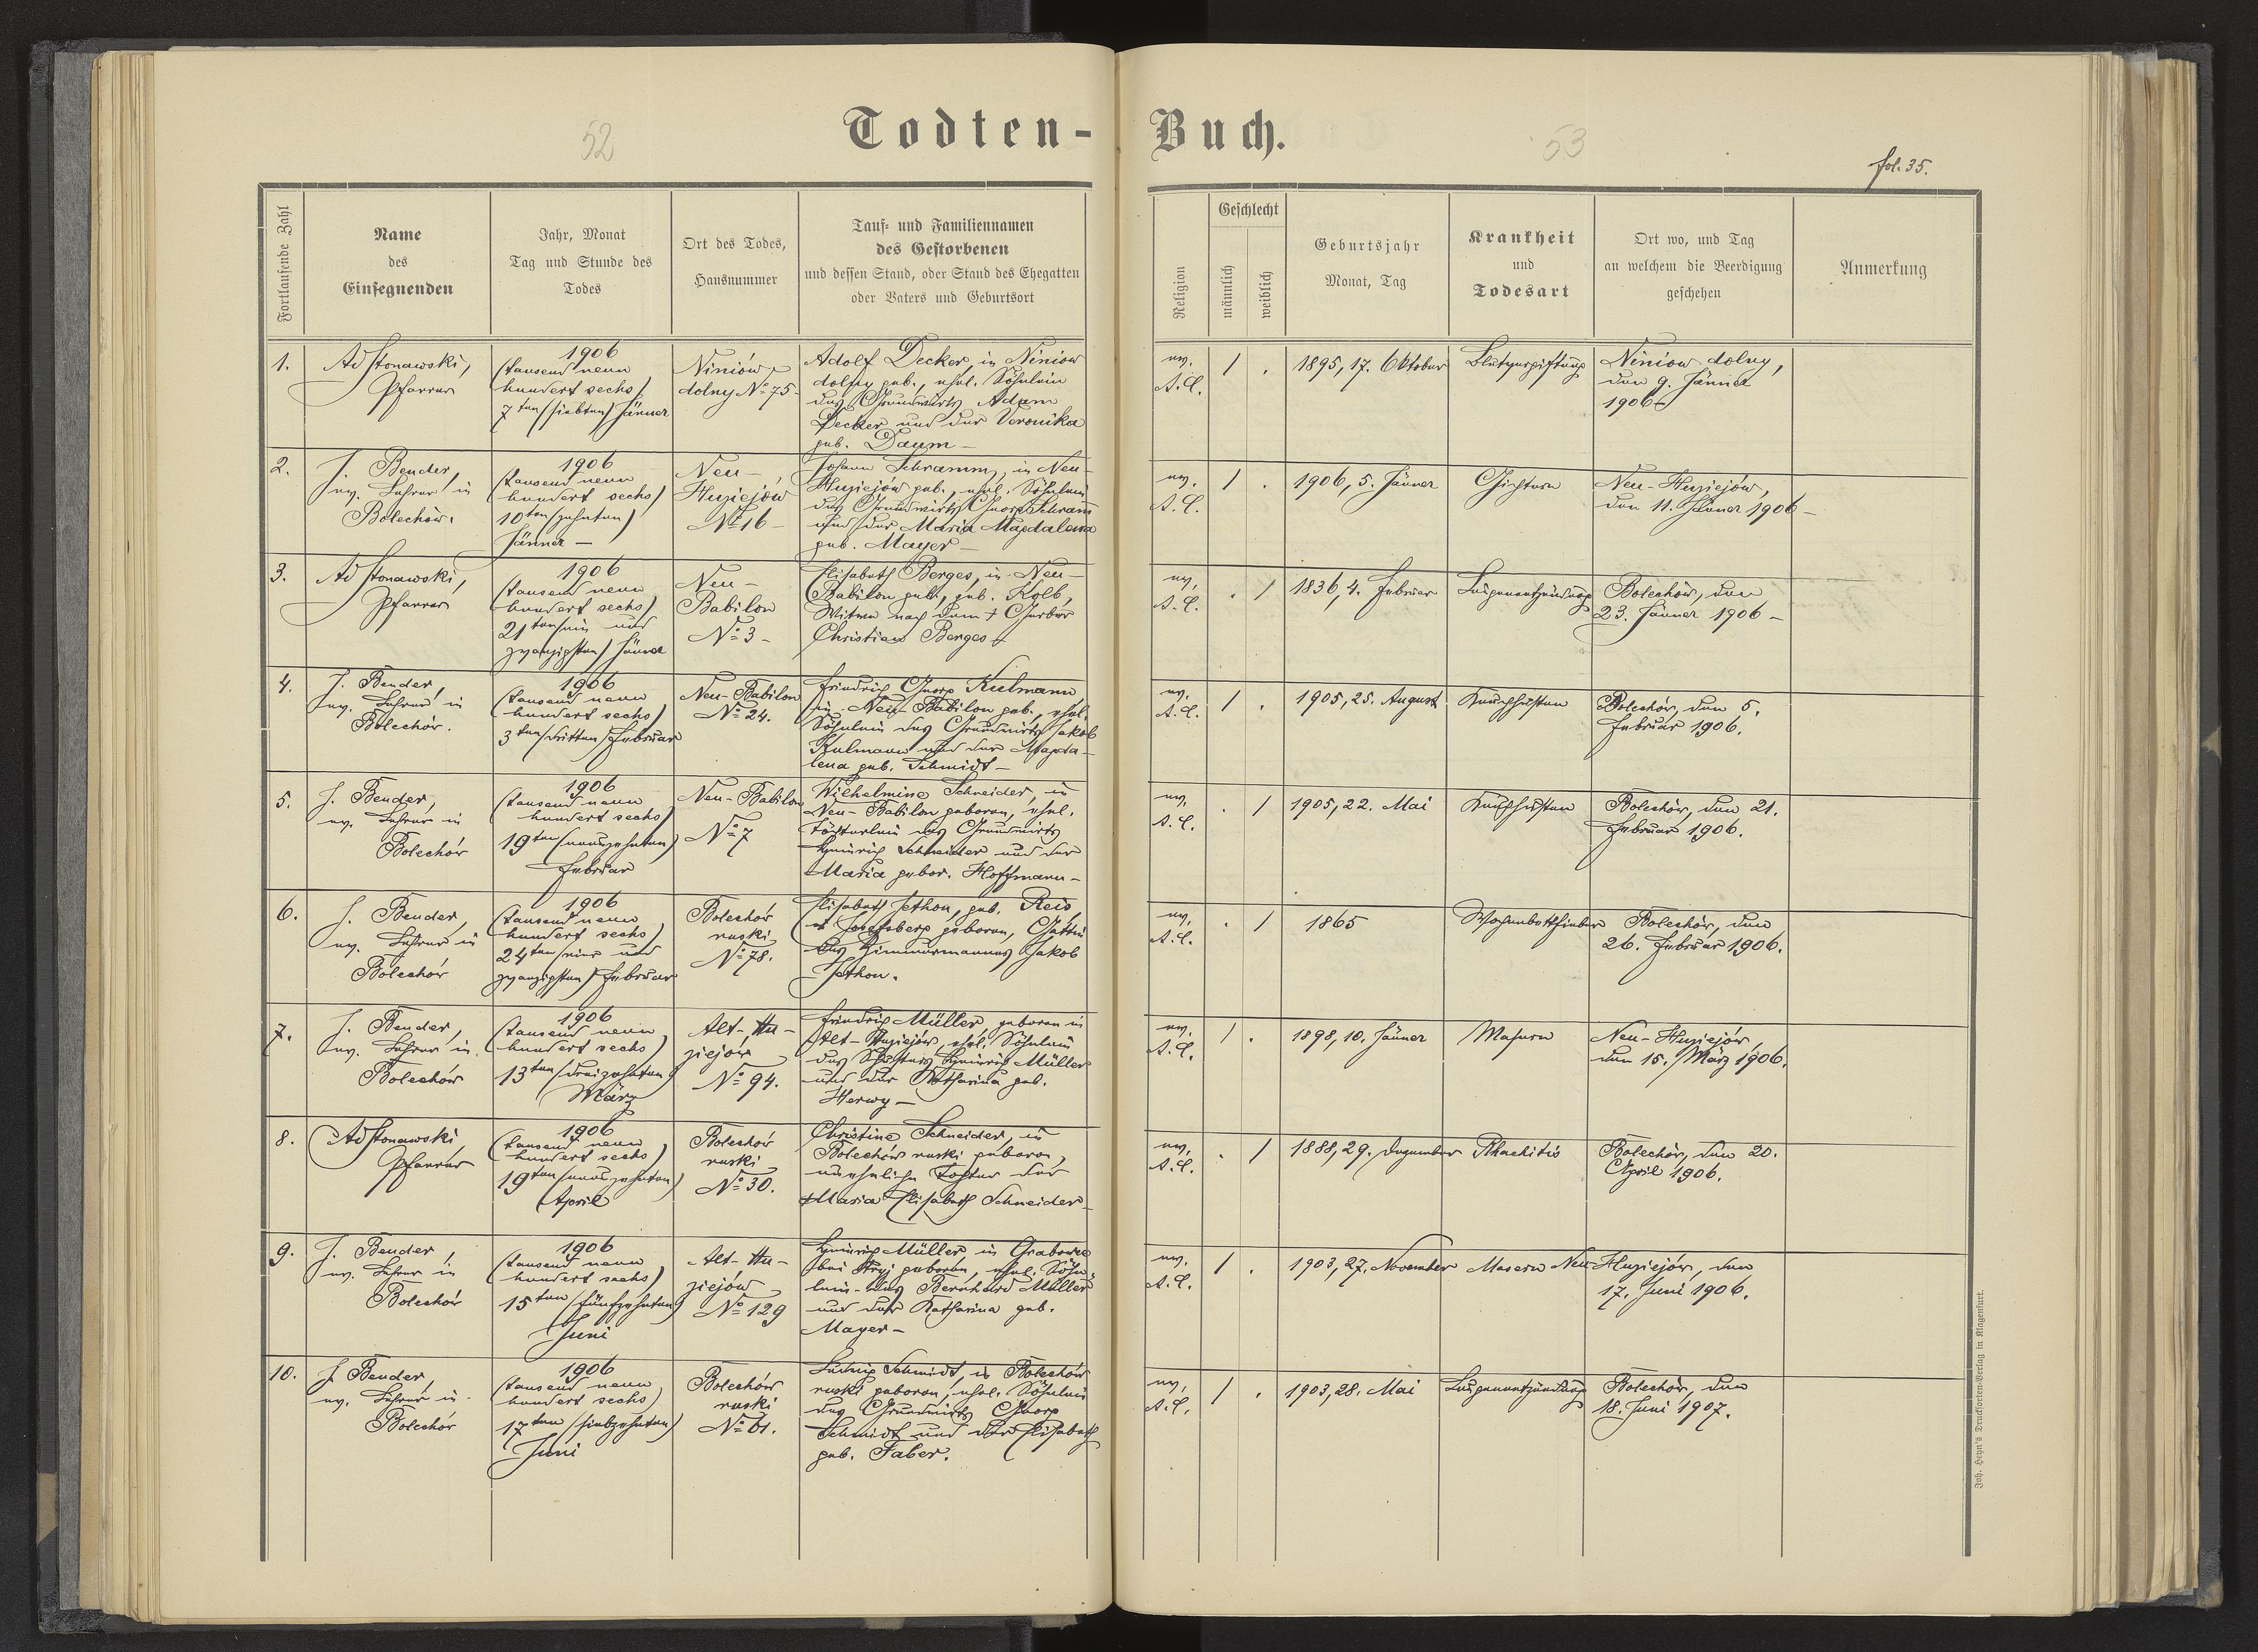 52
Todten-
Fortlaufende Zahl
Name
des
Einsegnenden
Jahr, Monat
Tag und Stunde des
Todes
Ort des Todes,
Hausnummer
Tauf- und Familiennamen
des Gestorbenen
und dessen Stand, oder Stand des Ehegatten
oder Vaters und Geburtsort
1.
Ad Stonawski,
Pfarrer
1906
(tausend neun
hundert sechs)
7ten (siebten) Jänner
Niniów
dolny No 75
Adolf Decker, in Niniow
dolny geb., ehel. Söhnlein
des Grundwirts Adam
Decker und der Veronika
geb. Daum -
2.
J. Bender,
ev. Lehrer in
Bolechów.
1906
(tausend neun
hundert sechs)
10ten (zehnten)
Jänner -
Neu-
Huziejów
No 16 -
Johann Schramm, in Neu-
Huziejów geb., ehel. Söhnlein
des Grundwirts Georg Schram̅
und der Maria Magdalena
geb. Mayer -
3.
Ad Stonawski,
Pfarrer
1906
(tausend neun
hundert sechs)
21ten (ein und
zwanzigsten) Jänner
Neu-
Babilon
No 3 -
Elisabeth Berges, in Neu-
Babilon geb., geb. Kolb,
Witwe nach dem † Gerber
Christian Berges
4.
J. Bender,
ev. Lehrer in
Bolechów.
1906
(tausend neun
hundert sechs)
3ten (dritten) Februar
Neu-Babilon
No 24.
Friedrich Georg Kulmann
in Neu-Babilon geb., ehel.
Söhnlein des Grundwirts Jakob
Kulmann und der Magda-
lena geb. Schmidt -
5.
J. Bender,
ev. Lehrer in
Bolechów
1906
(tausend neun
hundert sechs)
19ten (neunzehnten)
Februar
Neu-Babilon
No 7
Wilhelmine Schneider, in
Neu-Babilon geboren, ehel.
Töchterlein des Grundwirts
Heinrich Schneider und der
Maria gebor. Hoffmann -
6.
J. Bender,
ev. Lehrer in
Bolechów
1906
(tausend neun
hundert sechs)
24ten (vier und
zwanzigsten) Februar
Bolechów
ruski
No 78.
Elisabeth Jethon, geb. Reis
Josefsberg geboren, Gattin
des Zimmermannes Jakob
Jethon.
7.
J. Bender,
ev. Lehrer in
Bolechów
1906
(tausend neun
hundert sechs)
13ten (dreizehnten)
März
Alt-Hu-
ziejów
No 94.
Friedrich Müller, geboren in
Alt-Huziejów, ehel. Söhnlein
des Schusters Heinrich Müller
und der Katharina geb.
Herwy -
8.
Ad Stonawski,
Pfarrer
1906
(tausend neun
hundert sechs)
19ten (neunzehnten)
April
Bolechów
ruski
No 30.
Christine Schneider, in
Bolechów ruski geboren,
uneheliche Tochter der
Maria Elisabeth Schneider -
9.
J. Bender,
ev. Lehrer in
Bolechów
1906
(tausend neun
hundert sechs)
15ten (fünfzehnten)
Juni
Alt-Hu-
ziejów
No 129
Heinrich Müller, in Grabowce
bei Stryj geboren, ehel. Söhn-
lein des Bernhard Müller
und der Katharina geb.
Mayer -
10.
J. Bender,
ev. Lehrer in
Bolechów
1906
(tausend neun
hundert sechs)
17ten (siebzehnten)
Juni
Bolechów
ruski
No 61.
Ludwig Schmidt, in Bolechów
ruski geboren, ehel. Söhnlein
des Grundwirts Georg
Schmidt und der Elisabeth
geb. Faber.
Buch.
53
fol. 35.
Religion
Geschlecht
männlich
weiblich
Geburtsjahr
Monat, Tag
Krankheit
und
Todesart
Ort wo, und Tag
an welchem die Beerdigung
geschehen
Anmerkung
ev.
A.C.
1
.
1895, 17. Oktober
Blutvergiftung
Niniow dolny,
den 9. Jänner
1906
ev.
A.C.
1
.
1906, 5. Jänner
Gichtern
Neu-Huziejów,
den 11. Jänner 1906 -
ev.
A.C.
.
1
1836, 4. Februar
Lungenentzündung
Bolechów, den
23. Jänner 1906 -
ev.
A.C.
1
.
1905, 25. August
Keuchhusten
Bolechów, den 5.
Februar 1906.
ev.
A.C.
.
1
1905, 22. Mai
Keuchhusten
Bolechów, den 21.
Februar 1906.
ev.
A.C.
.
1
1865
Wochenbettfieber
Bolechów, den
26. Februar 1906.
ev.
A.C.
1
.
1898, 10. Jänner
Masern
Neu-Huziejów,
den 15. März 1906.
ev.
A.C.
.
1
1888, 29. Dezember
Rhachitis
Bolechów, den 20.
April 1906.
ev.
A.C.
1
.
1903, 27. November
Masern
Neu-Huziejów, den
17. Juni 1906.
ev.
A.C.
1
.
1903, 28. Mai
Lungenentzündung
Bolechów, den
18. Juni 1907.
Joh. Heyn's Drucksorten-Verlag in Klagenfurt.